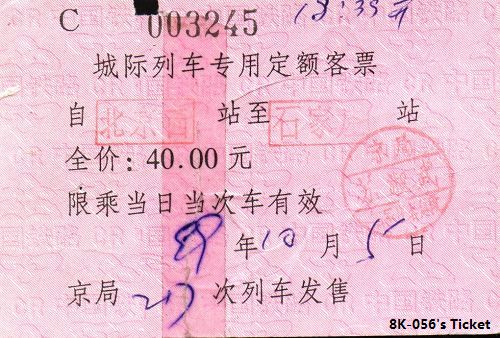 C 003245 18:35开
城际列车专用定额客票
自 北京西 站至 石家庄 站
全价：40.00元
限乘当日当次车有效
99年10月5日
京局 次列车发售
8K-056's Ticket